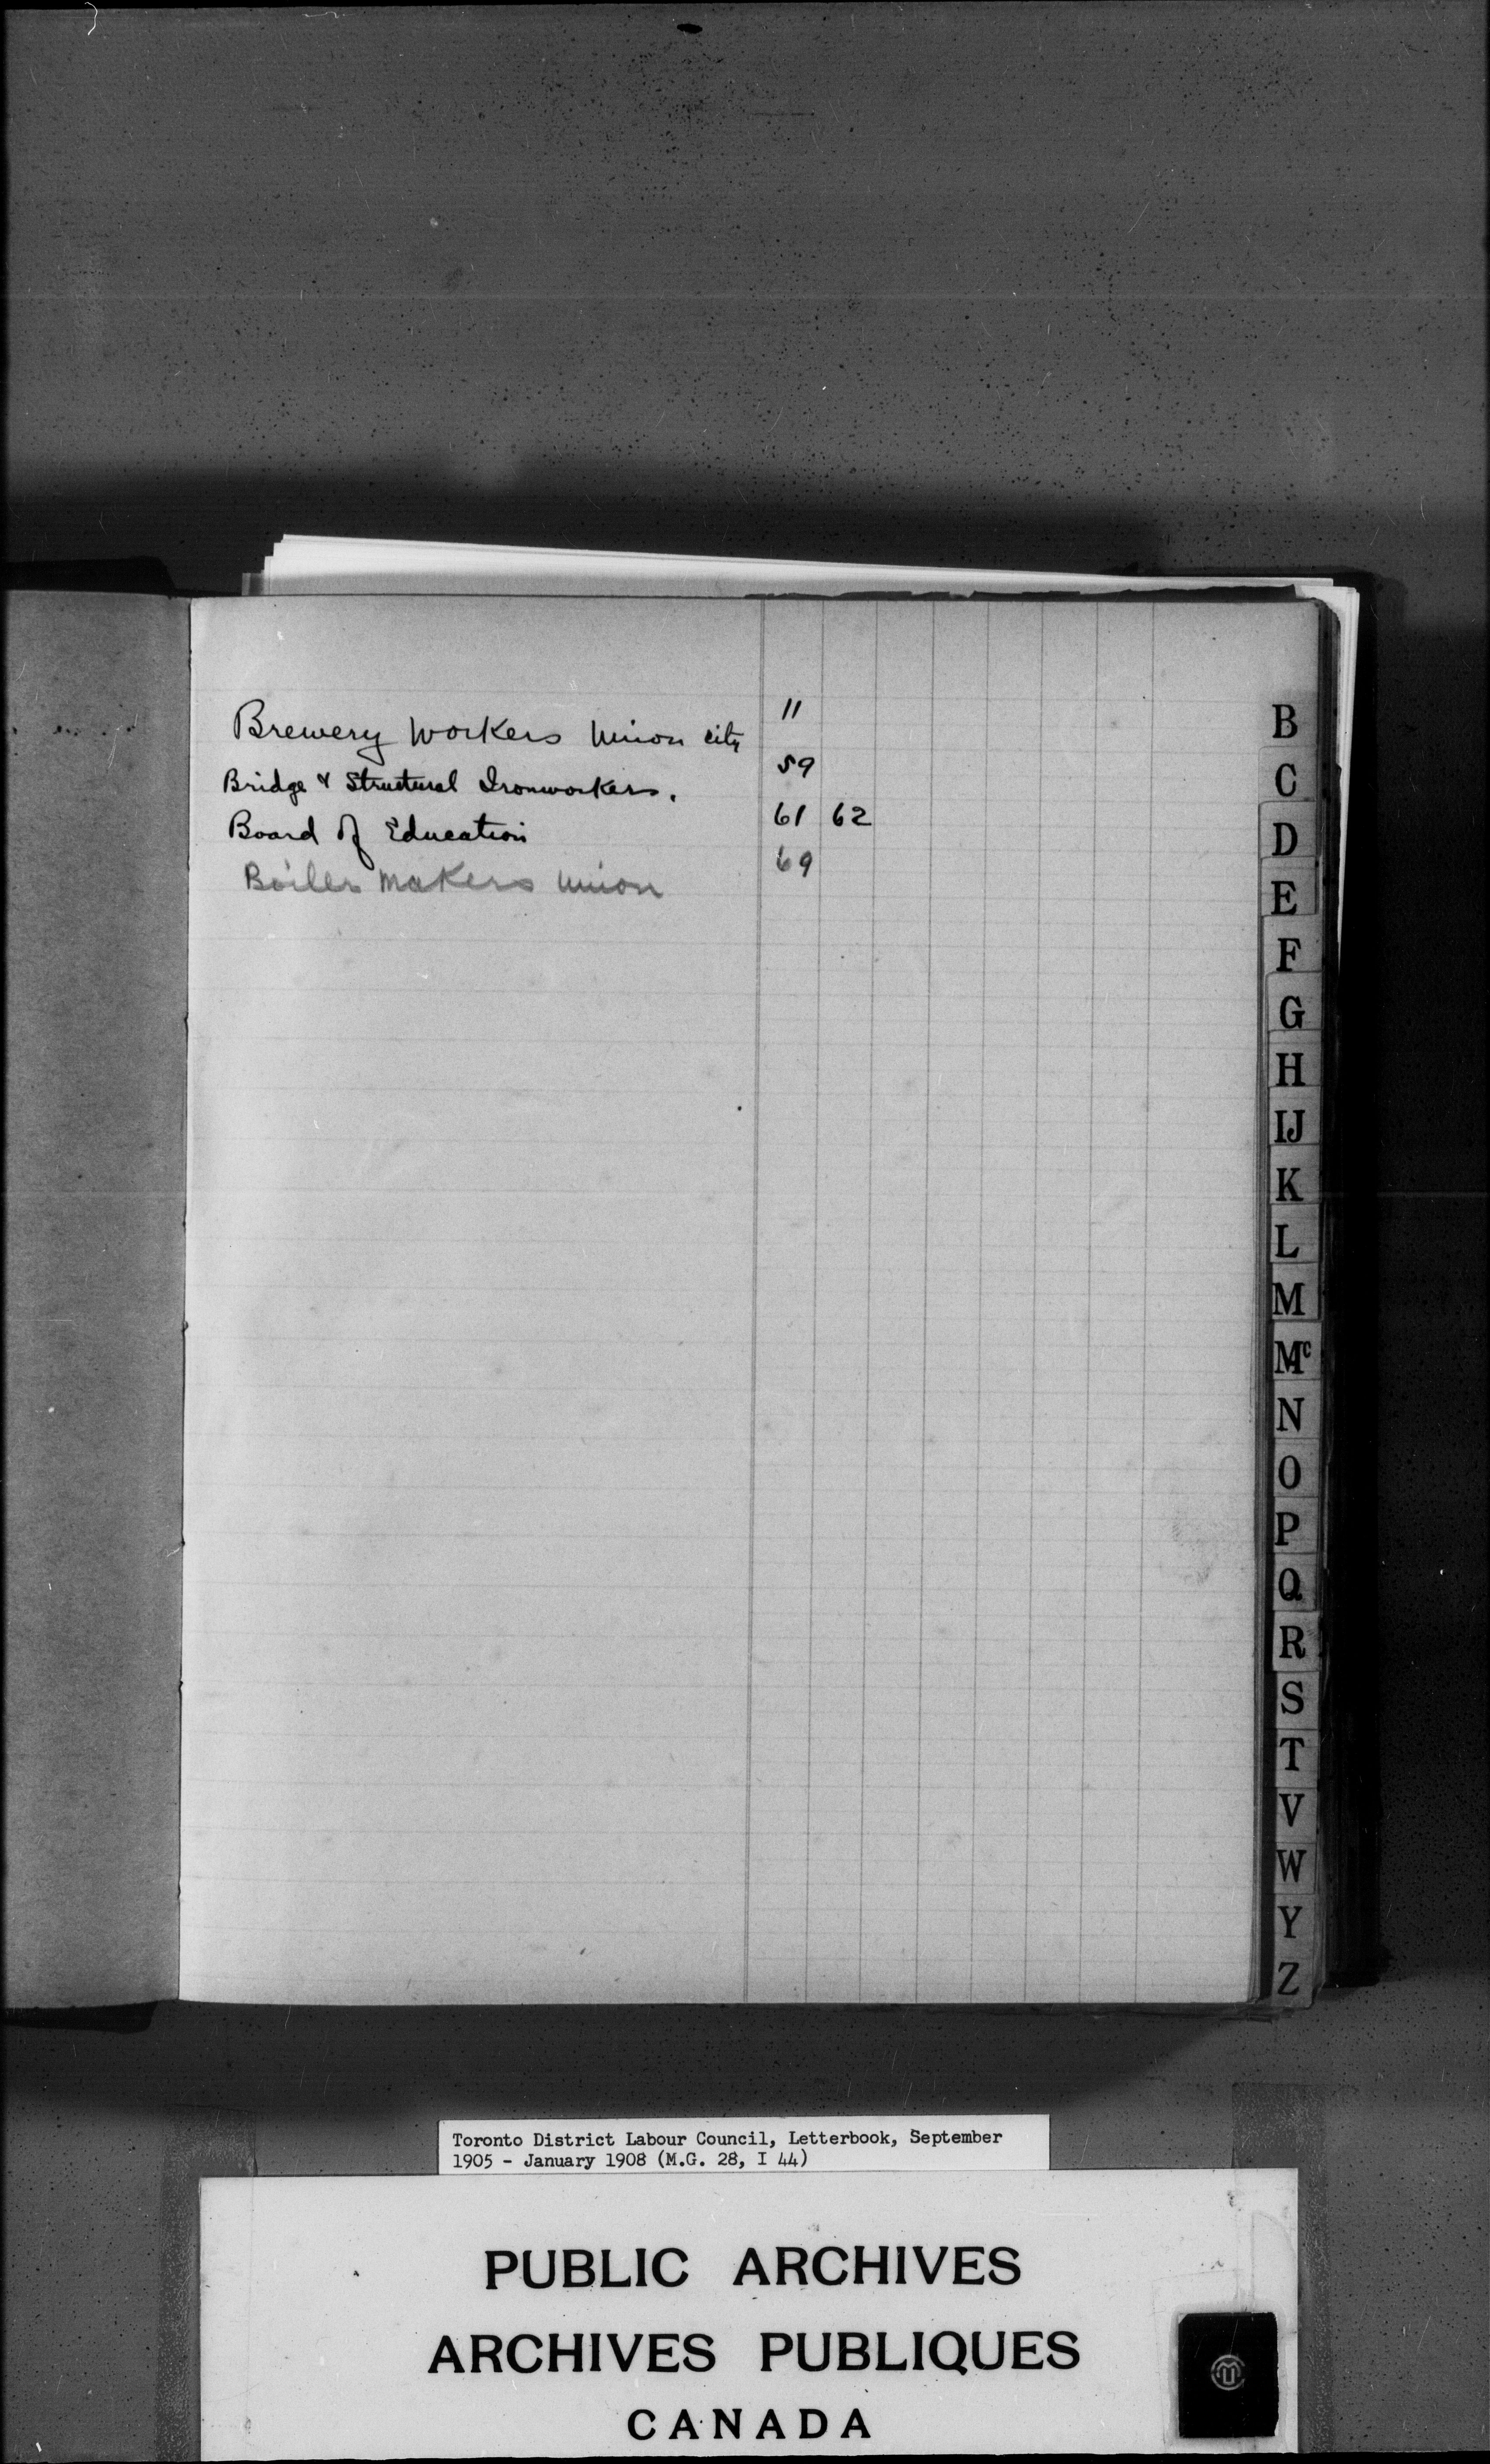 Brewery Workers Union city 11
Bridge & Structural Ironworkers. 59
Board of Education 61 62
Boiler Makers Union 69
B
C
D
E
F
G
H
IJ
K
L
M
Mc
N
O
P
Q
R
S
T
V
W
Y
Z
Toronto District Labour Council, Letterbook, September
1905 - January 1908 (M.G. 28, I 44)
PUBLIC ARCHIVES
ARCHIVES PUBLIQUES
CANADA